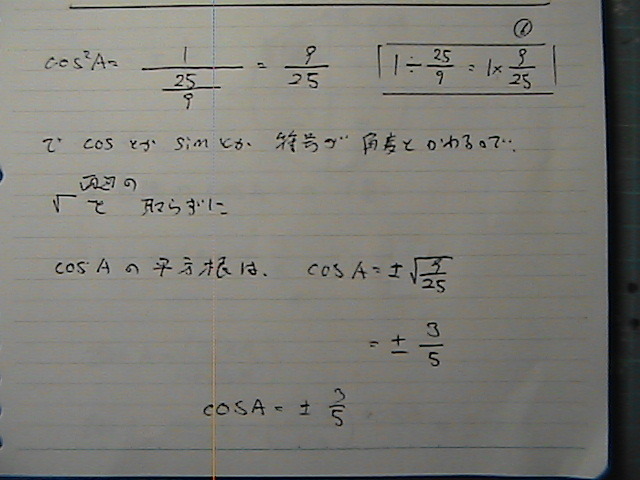 ①
cos²A = 1/(25/9) = 9/25  1÷25/9 = 1×9/25
で cos とか sin とか 符号が 角度とかわるので.
両辺の
√ を 取らずに
cos A の 平方根は. cos A = ±√(9/25)
= ± 3/5
cos A = ± 3/5